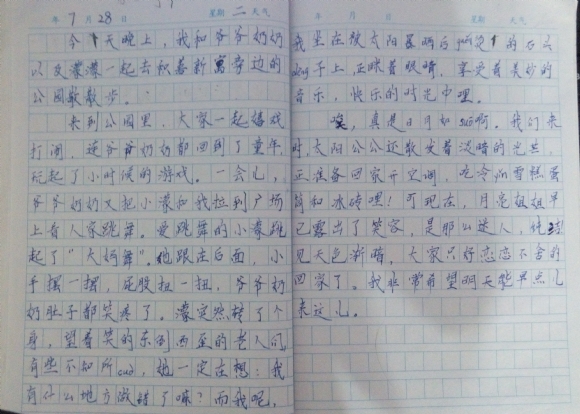 年 7 月 28 日 星期 二 天气
今天晚上，我和爷爷奶奶
以及濛濛一起去积善新寓旁边的
公园散散步。
来到公园里，大家一起嬉戏
打闹，连爷爷奶奶都回到了童年，
玩起了小时候的游戏。一会儿，
爷爷奶奶又把小濛和我拉到广场
上看人家跳舞。爱跳舞的小濛跳
起了“大妈舞”。她跟在后面，小
手摆一摆，屁股扭一扭，爷爷奶
奶肚子都笑疼了。濛突然转了个
身，望着笑的东倒西歪的老人们
有些不知所cuò，她一定在想：我
有什么地方做错了嘛？而我呢，
年 月 日 星期 天气
我坐在被太阳晒的后 的石头
dèng子上，正眯着眼睛，享受着美妙的
音乐，快乐的时光中哩。
唉，真是日月如suō啊。我们来
时，太阳公公还散发着淡暗的光芒，
正准备回家开空调，吃冷饮雪糕蛋
筒和冰砖哩！可现在，月亮姐姐早
已露出了笑容，是那么迷人，
见天色渐暗，大家只好恋恋不舍的
回家了。我非常希望明天能早点儿
来这儿。